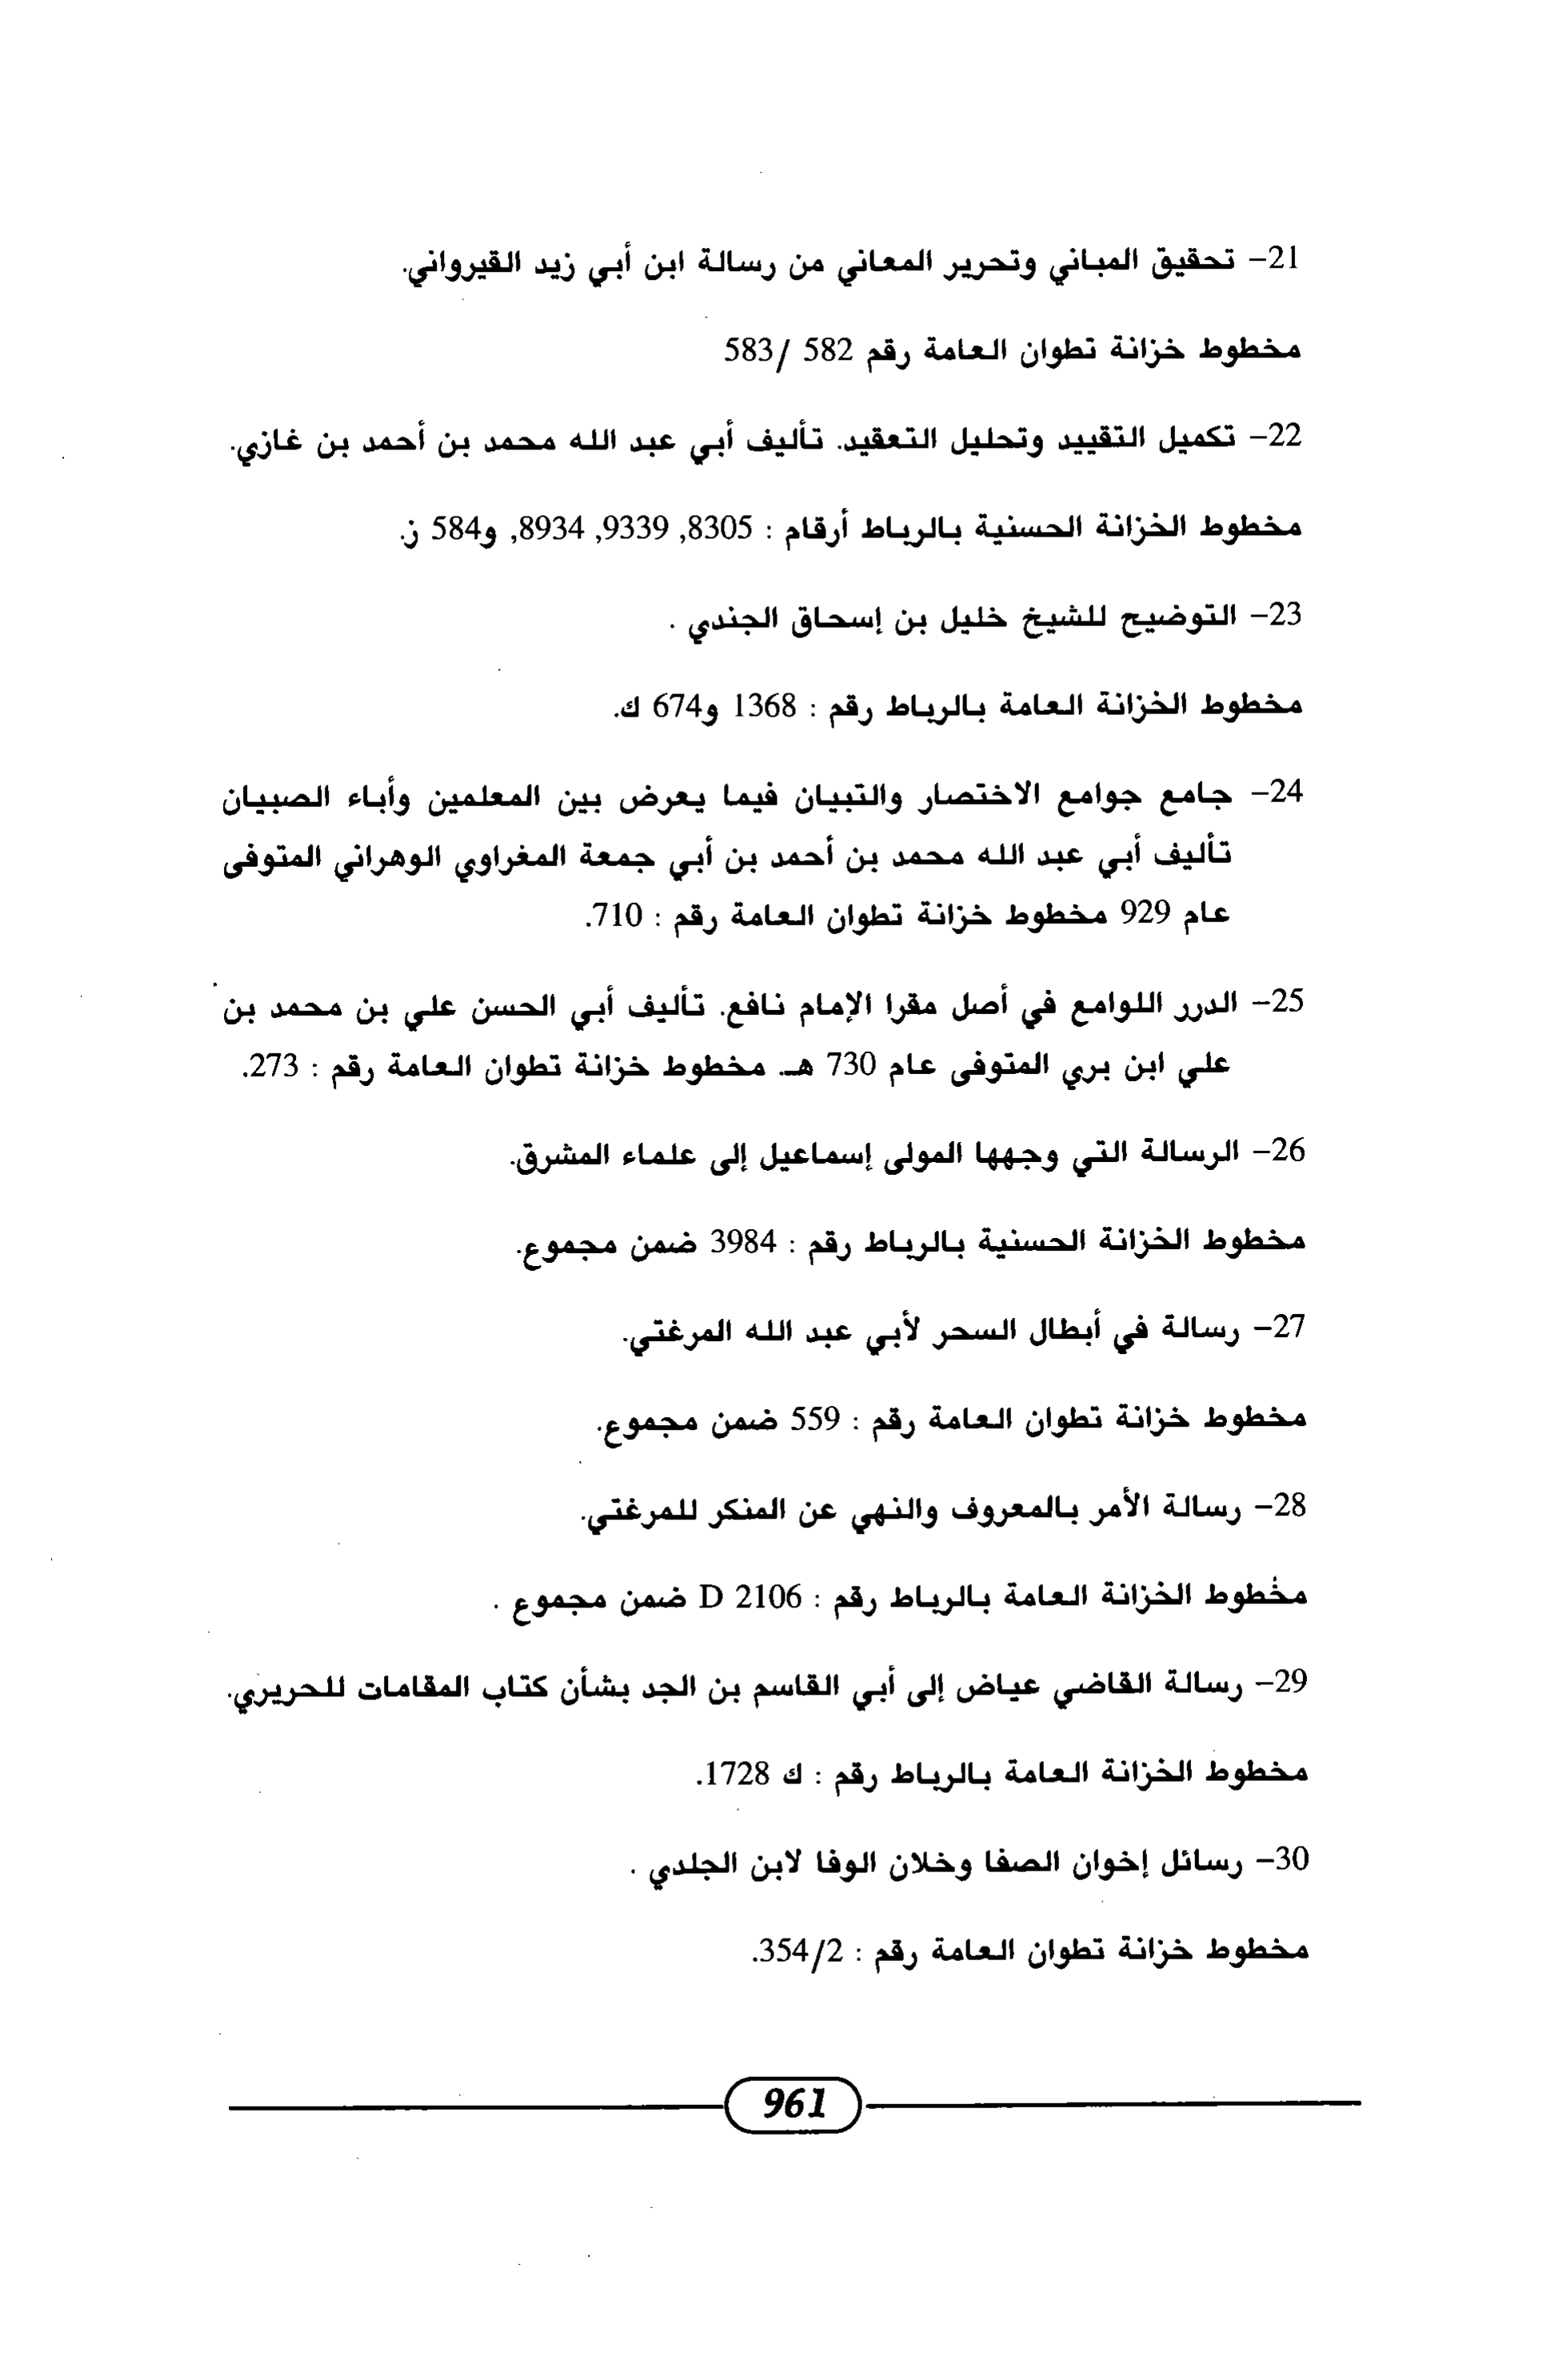 21- تحقيق المباني وتحرير المعاني من رسالة ابن أبي زيد القيرواني.
مخطوط خزانة تطوان العامة رقم 582 /583
22- تكميل التقييد وتحليل التعقيد. تأليف أبي عبد الله محمد بن أحمد بن غازي.
مخطوط الخزانة الحسنية بالرباط أرقام : 8305, 9339, 8934, و584 ز.
23- التوضيح للشيخ خليل بن إسحاق الجندي .
مخطوط الخزانة العامة بالرباط رقم : 1368 و674 ك.
24- جامع جوامع الاختصار والتبيان فيما يعرض بين المعلمين وأباء الصبيان
تأليف أبي عبد الله محمد بن أحمد بن أبي جمعة المغراوي الوهراني المتوفى
عام 929 مخطوط خزانة تطوان العامة رقم : 710.
25- الدرر اللوامع في أصل مقرا الإمام نافع. تأليف أبي الحسن علي بن محمد بن
علي ابن بري المتوفى عام 730 هـ. مخطوط خزانة تطوان العامة رقم : 273.
26- الرسالة التي وجهها المولى إسماعيل إلى علماء المشرق.
مخطوط الخزانة الحسنية بالرباط رقم : 3984 ضمن مجموع.
27- رسالة في أبطال السحر لأبي عبد الله المرغتي.
مخطوط خزانة تطوان العامة رقم : 559 ضمن مجموع.
28- رسالة الأمر بالمعروف والنهي عن المنكر للمرغتي.
مخطوط الخزانة العامة بالرباط رقم : 2106 D ضمن مجموع .
29- رسالة القاضي عياض إلى أبي القاسم بن الجد بشأن كتاب المقامات للحريري.
مخطوط الخزانة العامة بالرباط رقم : ك 1728.
30- رسائل إخوان الصفا وخلان الوفا لابن الجلدي .
مخطوط خزانة تطوان العامة رقم : 354/2.
961